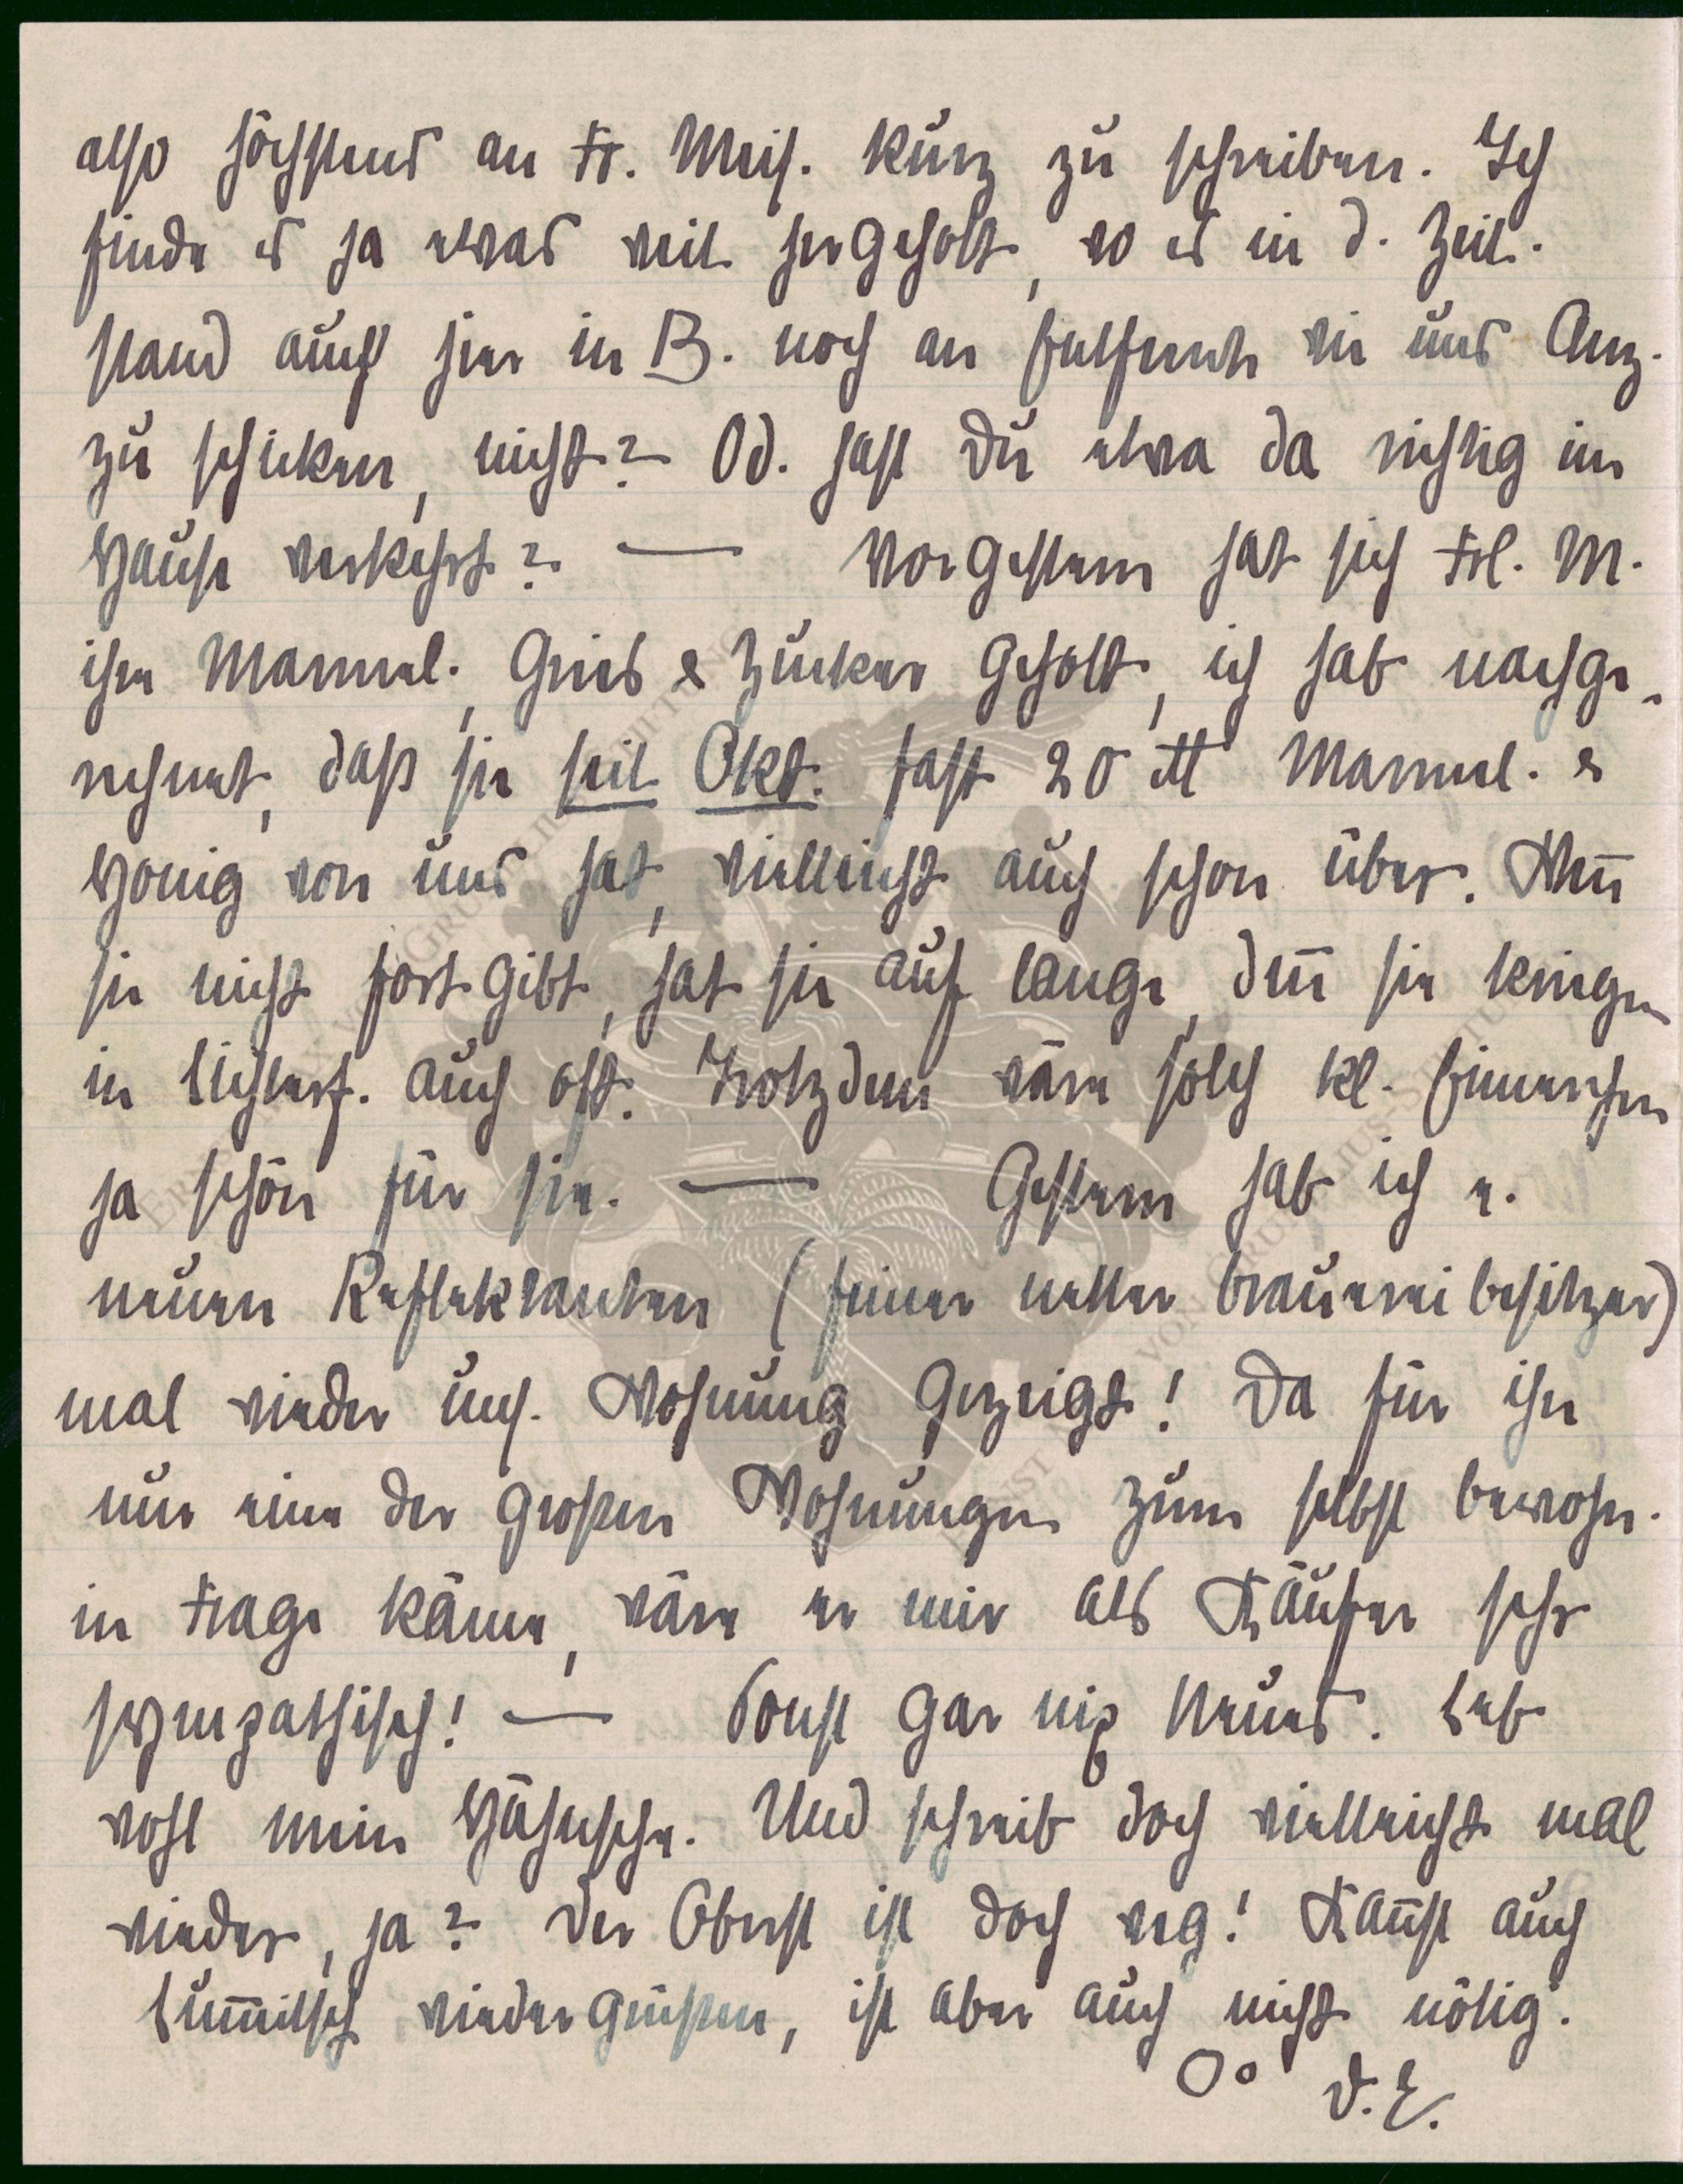 also höchstens an Fr. Meis. kurz zu schreiben. Ich
finde es ja etwas weit hergeholt, wo es in d. Zeit.
stand auch hier in B. noch an wie uns Anz.
zu schicken, nicht? Od. hast Du etwa da richtig im
Hause verkehrt? — Vorgestern hat sich Frl. M.
ihre Marmel. Gries & Zucker geholt, ich hab nachge-
rechnet, daß sie seit Okt. fast 20 ℔ Marmel. &
Honig von uns hat, vielleicht auch schon über. Wen̅
sie nicht fortgibt, hat sie auf lange, den̅ sie kriegen
in Lichterf. auch oft. Trotzdem wäre solch kl. Eimerchen
ja schön für sie. — Gestern hab ich e.
neuen Reflektanten (feiner netter Brauereibesitzer)
mal wieder uns. Wohnung gezeigt! Da für ihn
nur eine der großen Wohnungen zum selbst bewohn.
in Frage käme, wäre er mir als Käufer sehr
sympathisch! — Sonst gar nix Neues. Leb
wohl mein Hähnsche. Und schreib doch vielleicht mal
wieder, ja? Der Oberst ist doch weg! Kan̅st auch
wiedergrüßen, ist aber auch nicht nötig.
D. E.